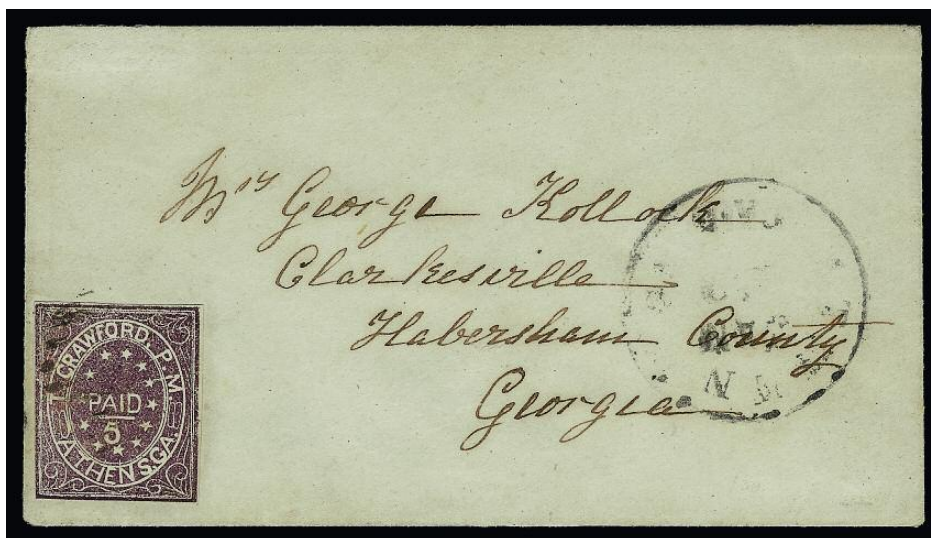 Mrs George Kollock
Clarkesville
Habersham County
Georgia
T. CRAWFORD, P.M.
PAID
5
ATHENS, GA.